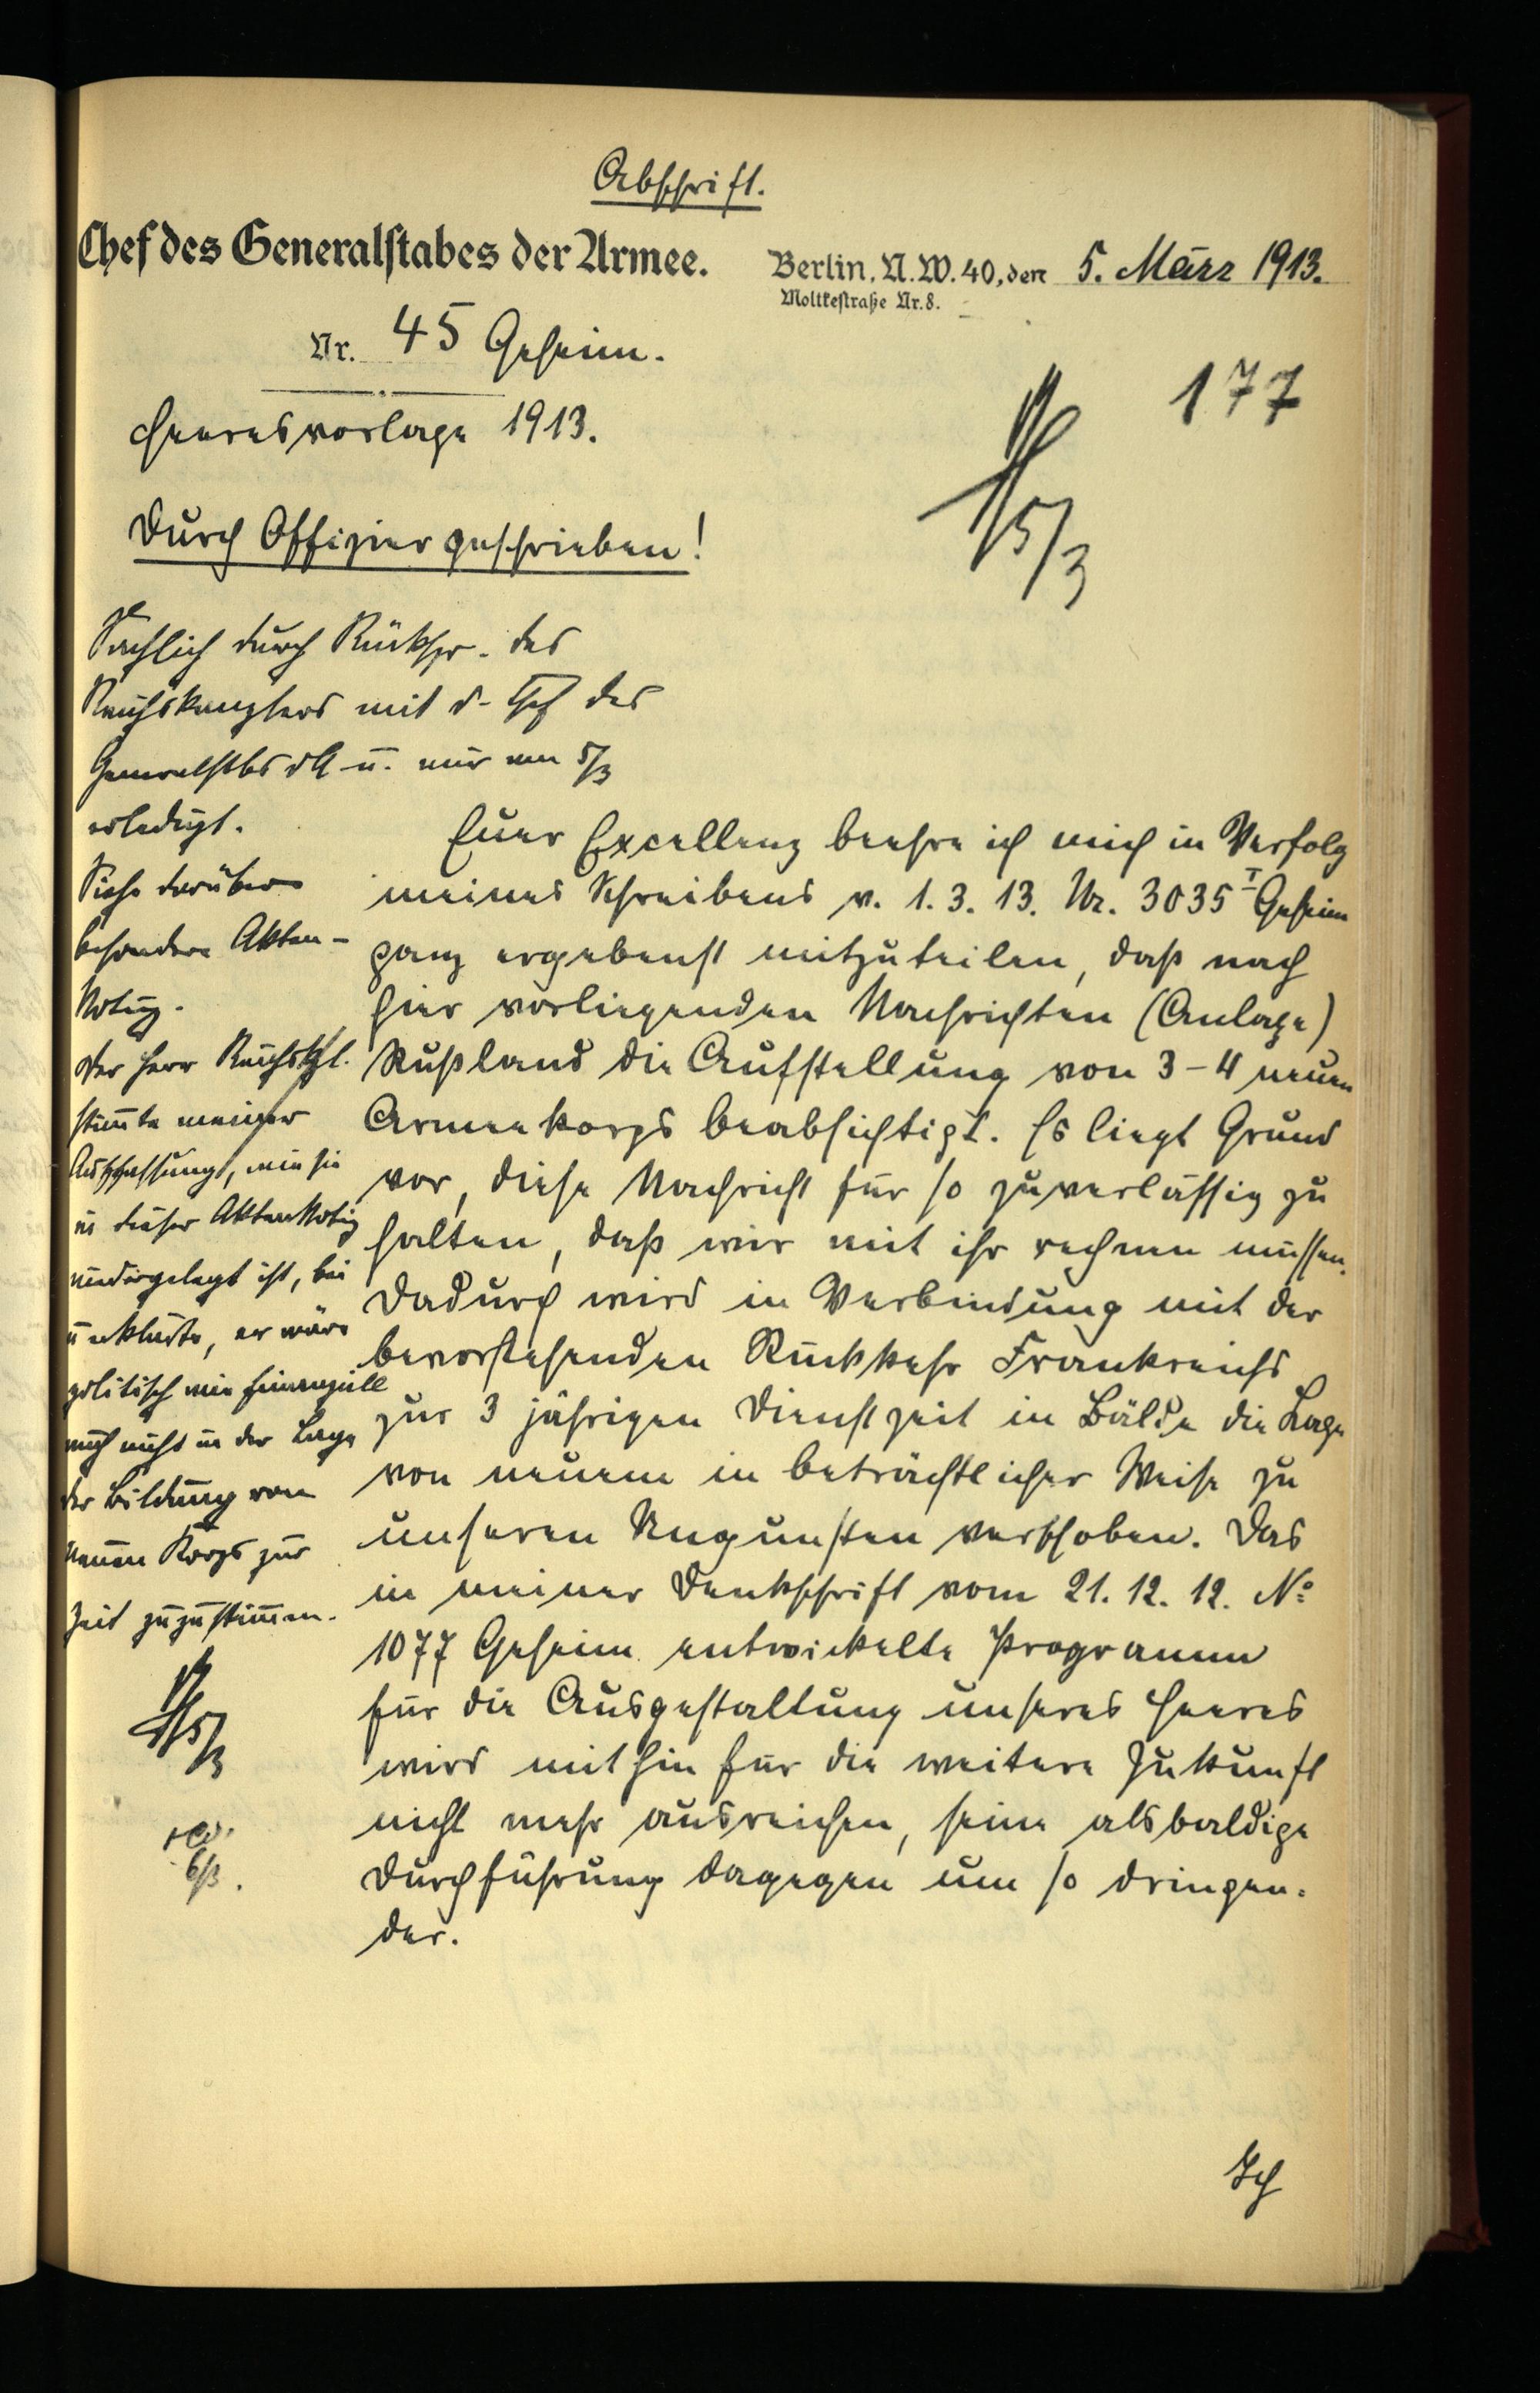 Abschrift.
Chef des Generalstabes der Armee.
Berlin, N.W. 40, den 5. März 1913.
Moltkestraße Nr. 8.
Nr. 45 Geheim.
177
Heeresvorlage 1913.
5/3
Durch Offizier geschrieben!
Sachlich durch Rückspr. des
Reichskanzlers mit d. Chef des
Generalstbs dA u. mir am 5/3
erledigt.
Siehe darüber
besondere Akten-
Notiz.
Der Herr Reichskzl.
stimte meiner
Auffassung, wie sie
in dieser Aktennotiz
niedergelegt ist, bei
u erklärte, er wäre
politisch wie finanziell
auch nicht in der Lage
der Bildung von
neuen Korps zur
Zeit zuzustimmen.
5/3
6/3.
Euer Excellenz beehre ich mich in Verfolg
meines Schreibens v. 1. 3. 13. Nr. 3035 I Geheim
ganz ergebenst mitzuteilen, daß nach
hier vorliegenden Nachrichten (Anlage)
Rußland die Aufstellung von 3-4 neuen
Armeekorps beabsichtigt. Es liegt Grund
vor, diese Nachricht für so zuverlässig zu
halten, daß wir mit ihr rechnen müssen.
Dadurch wird in Verbindung mit der
bevorstehenden Rückkehr Frankreichs
zur 3 jährigen Dienstzeit in Bälde die Lage
von neuem in beträchtlicher Weise zu
unseren Ungunsten verschoben. Das
in meiner Denkschrift vom 21. 12. 12. No
1077 Geheim entwickelte Programm
für die Ausgestaltung unseres Heeres
wird mithin für die weitere Zukunft
nicht mehr ausreichen, seine alsbaldige
Durchführung dagegen um so dringen-
der.
Ich